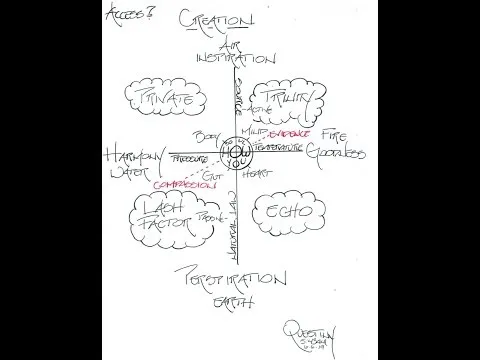 ACCESS?
CREATION
AIR
INSPIRATION
PRIVATE
TRINITY
SOURCE
ACTIVE
BODY
MIND
EVIDENCE
FIRE
HARMONY
PRESSURE
HOW
TEMPERATURE
GOODNESS
WATER
YOU
COMPASSION
GUT
HEART
LASH
FACTOR
PASSIVE
NATURAL LAW
ECHO
PERSPIRATION
EARTH